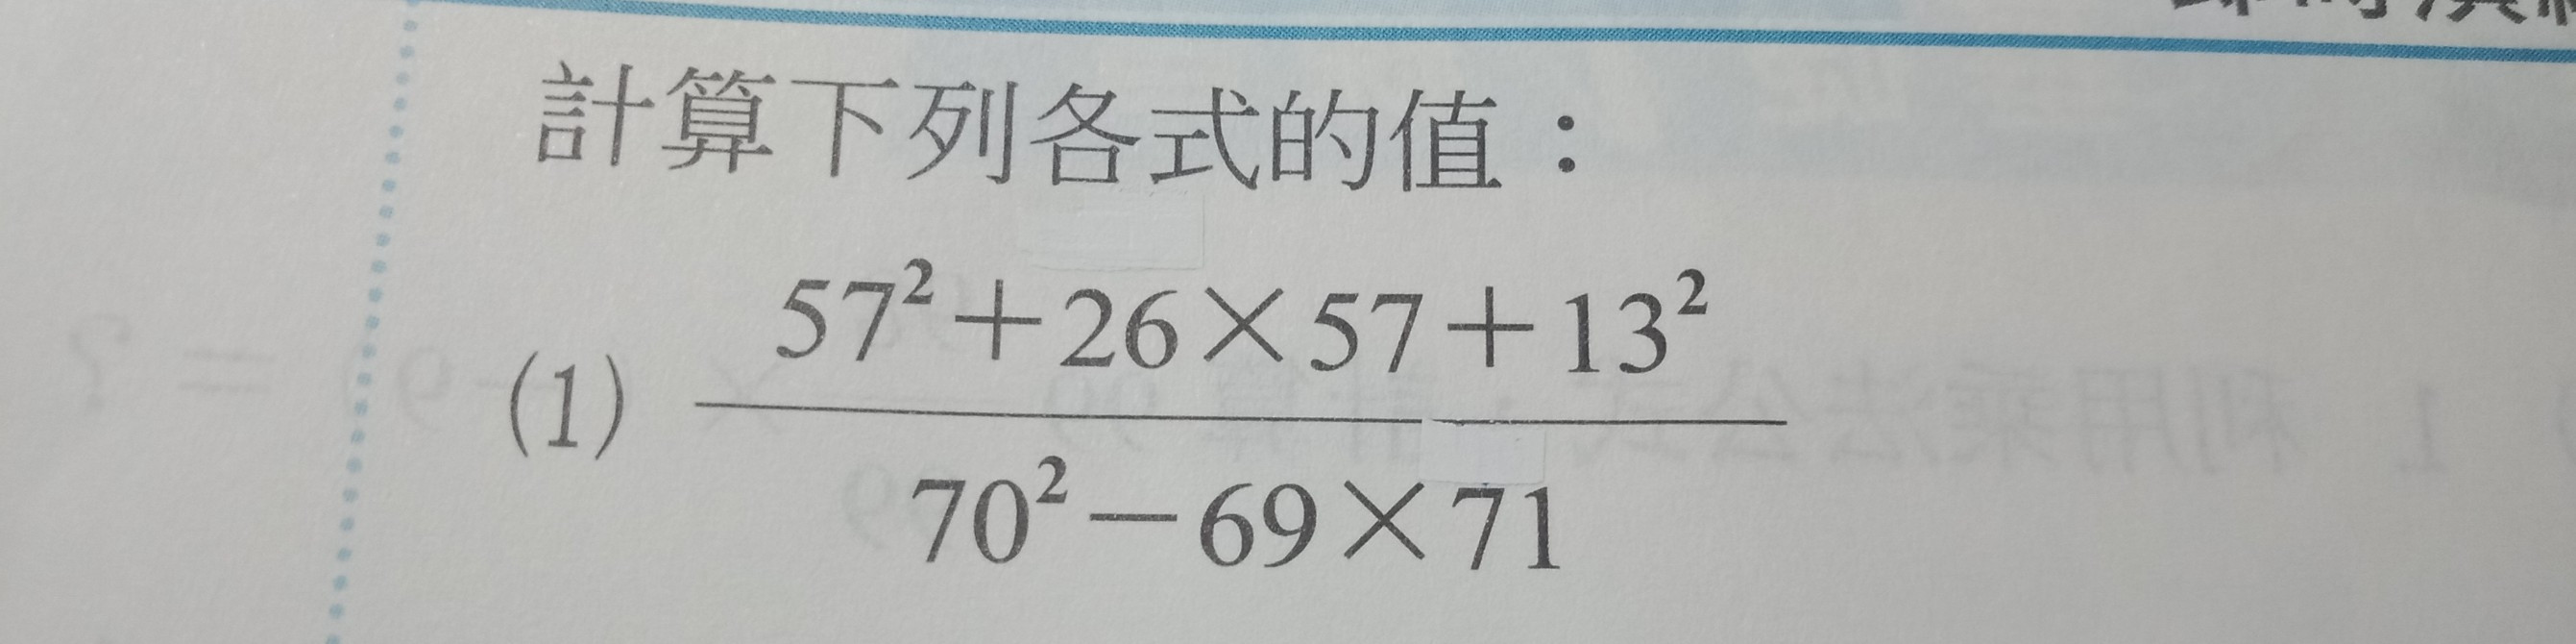 計算下列各式的值：
(1) \frac{57²+26×57+13²}{70²－69×71}